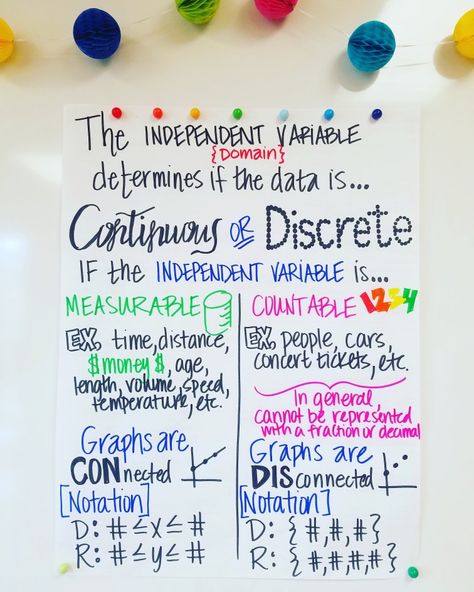 The INDEPENDENT VARIABLE
{Domain}
determines if the data is...
Continuous OR Discrete
IF the INDEPENDENT VARIABLE is...
MEASURABLE
EX. time, distance,
$money$, age,
length, volume, speed,
temperature, etc.
Graphs are
CONnected
[Notation]
D: # ≤ x ≤ #
R: # ≤ y ≤ #
COUNTABLE 1234
EX. people, cars,
concert tickets, etc.
In general,
cannot be represented
with a fraction or decimal
Graphs are
DISconnected
[Notation]
D: {#,#,#}
R: {#,#,#,#}